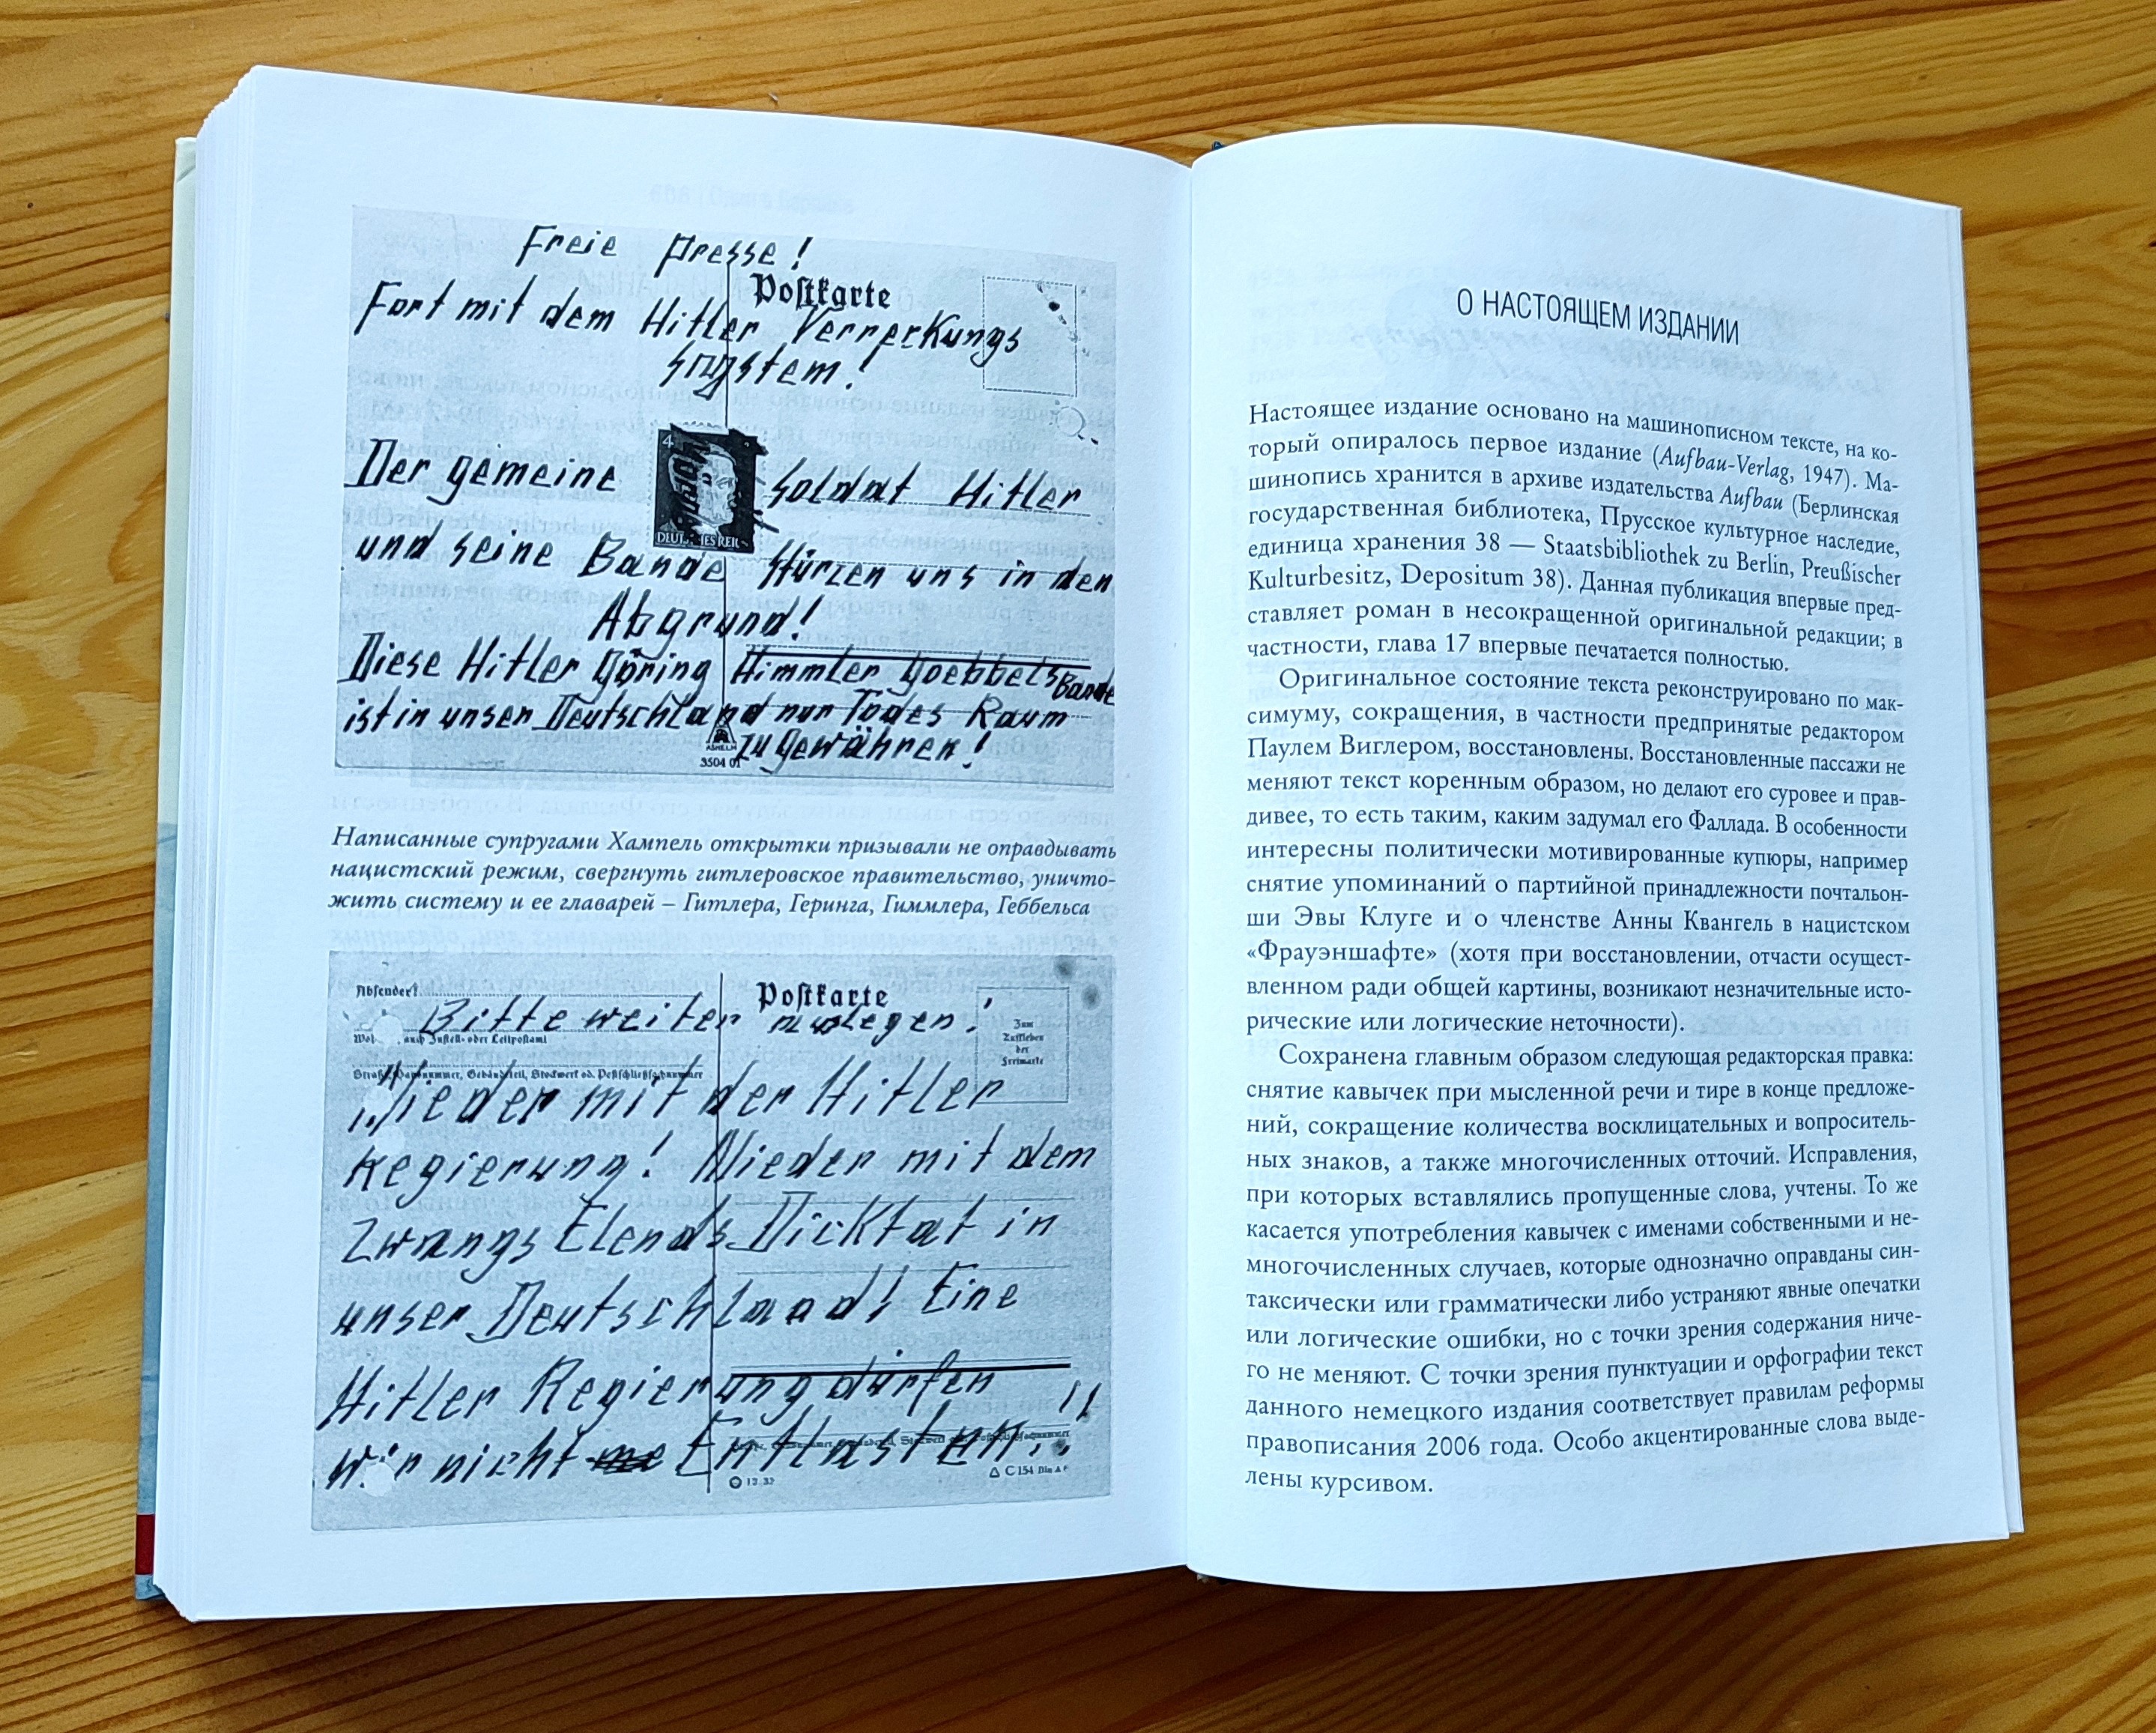 Freie Presse!
Postkarte
Fort mit dem Hitler Verreckungs
system!
4
Der gemeine Soldat Hitler
DEUTSCHES REICH
und seine Bande stürzen uns in den
Abgrund!
Diese Hitler Göring Himmler Goebbels Bande
ist in unser Deutschland nur Todes Raum
zu gewähren!
3504 01
Написанные супругами Хампель открытки призывали не оправдывать
нацистский режим, свергнуть гитлеровское правительство, уничто-
жить систему и ее главарей – Гитлера, Геринга, Гиммлера, Геббельса
Absender:
Postkarte
Bitte weiter
auch Zustell- oder Leitpostamt
Zum
Aufkleben
der
Freimarke
Straße, Hausnummer, Gebäudeteil, Stockwerk od. Postschließfachnummer
Nieder mit der Hitler
Regierung! Nieder mit dem
Zwangs Elends Dicktat in
unser Deutschland! Eine
Hitler Regierung dürfen
wir nicht Entlasten!!
C 154 Din A 6
О НАСТОЯЩЕМ ИЗДАНИИ
Настоящее издание основано на машинописном тексте, на ко-
торый опиралось первое издание (Aufbau-Verlag, 1947). Ма-
шинопись хранится в архиве издательства Aufbau (Берлинская
государственная библиотека, Прусское культурное наследие,
единица хранения 38 — Staatsbibliothek zu Berlin, Preußischer
Kulturbesitz, Depositum 38). Данная публикация впервые пред-
ставляет роман в несокращенной оригинальной редакции; в
частности, глава 17 впервые печатается полностью.
Оригинальное состояние текста реконструировано по мак-
симуму, сокращения, в частности предпринятые редактором
Паулем Виглером, восстановлены. Восстановленные пассажи не
меняют текст коренным образом, но делают его суровее и прав-
дивее, то есть таким, каким задумал его Фаллада. В особенности
интересны политически мотивированные купюры, например
снятие упоминаний о партийной принадлежности почтальон-
ши Эвы Клуге и о членстве Анны Квангель в нацистском
«Фрауэншафте» (хотя при восстановлении, отчасти осущест-
вленном ради общей картины, возникают незначительные исто-
рические или логические неточности).
Сохранена главным образом следующая редакторская правка:
снятие кавычек при мысленной речи и тире в конце предложе-
ний, сокращение количества восклицательных и вопроситель-
ных знаков, а также многочисленных отточий. Исправления,
при которых вставлялись пропущенные слова, учтены. То же
касается употребления кавычек с именами собственными и не-
многочисленных случаев, которые однозначно оправданы син-
таксически или грамматически либо устраняют явные опечатки
или логические ошибки, но с точки зрения содержания ниче-
го не меняют. С точки зрения пунктуации и орфографии текст
данного немецкого издания соответствует правилам реформы
правописания 2006 года. Особо акцентированные слова выде-
лены курсивом.